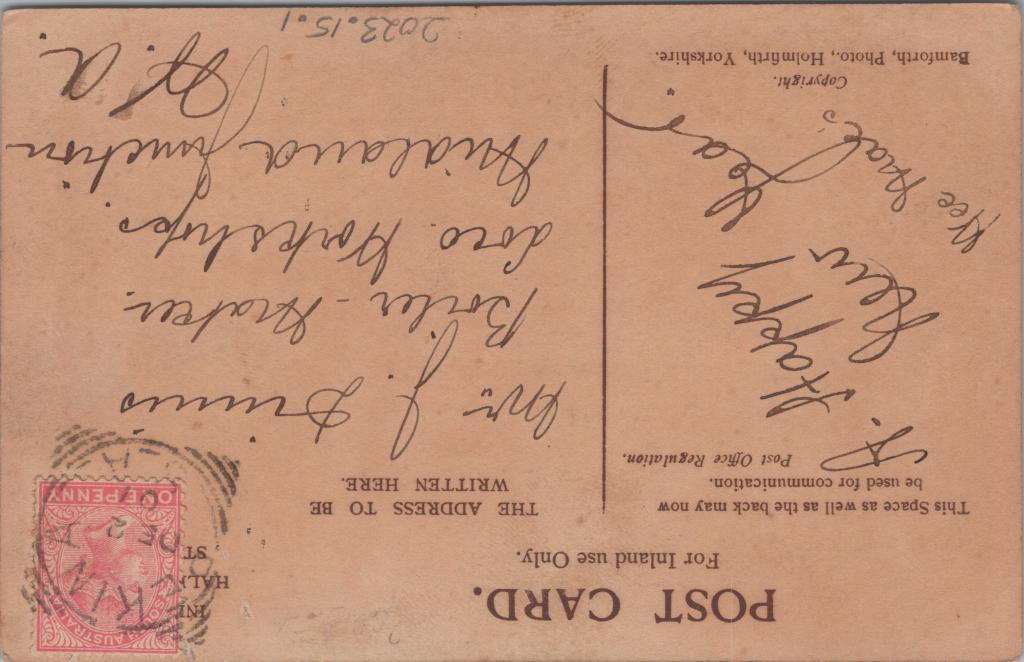 POST CARD.
For Inland use Only.
This Space as well as the back may now
be used for communication.
Post Office Regulation.
A. Happy
New Year
Copyright.
Bamforth, Photo., Holmfirth, Yorkshire.
THE ADDRESS TO BE
WRITTEN HERE.
HALF
ST
SOUTH AUSTRALIA
ONE PENNY
DE 2
07
Mr J. Dinnis
Boiler-Maker
Loco. Workshops.
Midland Junction
W.A
2023.15.1